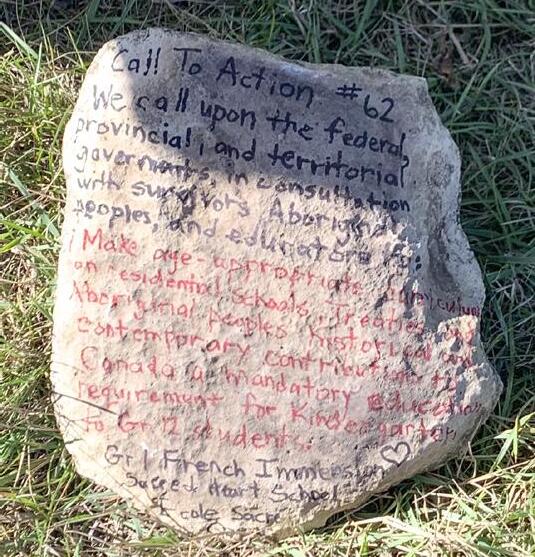 Call To Action #62
We call upon the federal,
provincial, and territorial
governments, in consultation
with survivors, Aboriginal
peoples, and educators, to:
Make age-appropriate curriculum
on residential schools, Treaties, and
Aboriginal peoples' historical and
contemporary contributions to
Canada a mandatory education
requirement for Kindergarten
to Gr. 12 students.
Gr 1 French Immersion ♡
Sacred Heart School
École Sacré